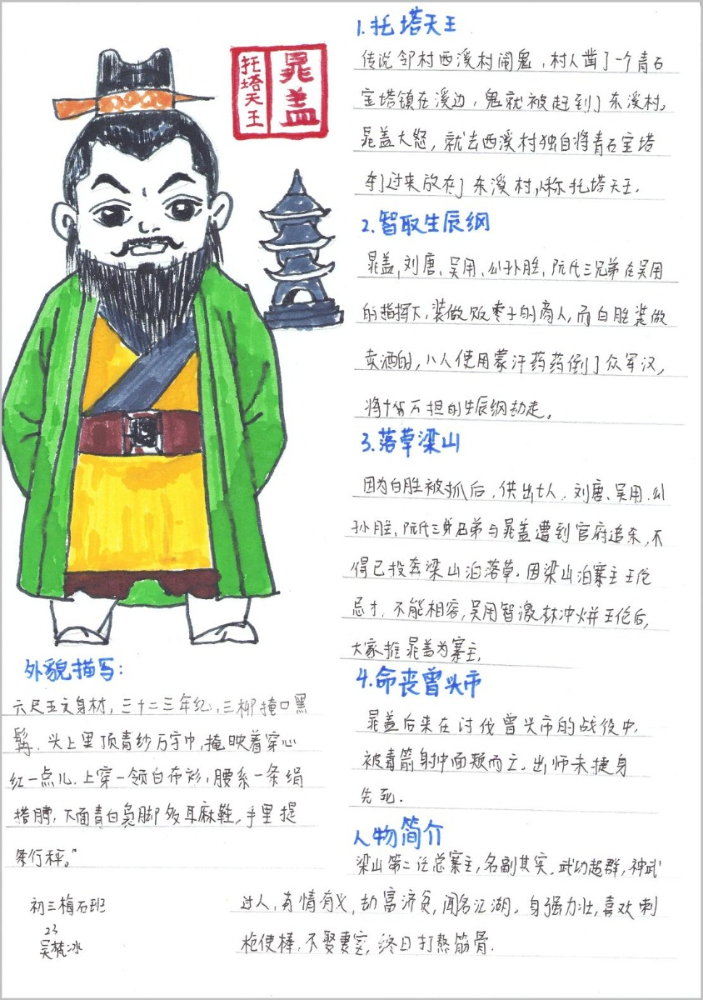 晁盖
托塔天王
1.托塔天王
传说邻村西溪村闹鬼，村人凿了一个青石
宝塔镇在溪边，鬼就被赶到了东溪村。
晁盖大怒，就去西溪村独自将青石宝塔
夺过来放在了东溪村，人称托塔天王.
2.智取生辰纲
晁盖,刘唐、吴用、公孙胜,阮氏三兄弟在吴用
的指挥下，装做贩枣子的商人，而白胜装做
卖酒的，八人使用蒙汗药药倒了众军汉，
将十万担的生辰纲劫走。
3.落草梁山
因为白胜被抓后，供出七人、刘唐、吴用、公
孙胜,阮氏三兄弟与晁盖遭到官府追杀，不
得已投奔梁山泊落草.因梁山泊寨主王伦
忌才，不能相容，吴用智激林冲火并王伦后，
大家推晁盖为寨主.
4.命丧曾头市
晁盖后来在讨伐曾头市的战役中，
被毒箭射中面颊而亡.出师未捷身
先死.
人物简介
梁山第二任总寨主,名副其实,武功超群,神武
过人,有情有义,劫富济贫,闻名江湖.身强力壮,喜欢刺
枪使棒,不娶妻室,终日打熬筋骨.
外貌描写：
六尺五六身材，三十二三年纪，三柳掩口黑
髯.头上里顶青纱万字巾,掩映着穿心
红一点儿.上穿一领白布衫，腰系一条绢
搭膊,下面青白袅脚多耳麻鞋，手里提
条行秤。”
初三梅石班
23
吴梵冰